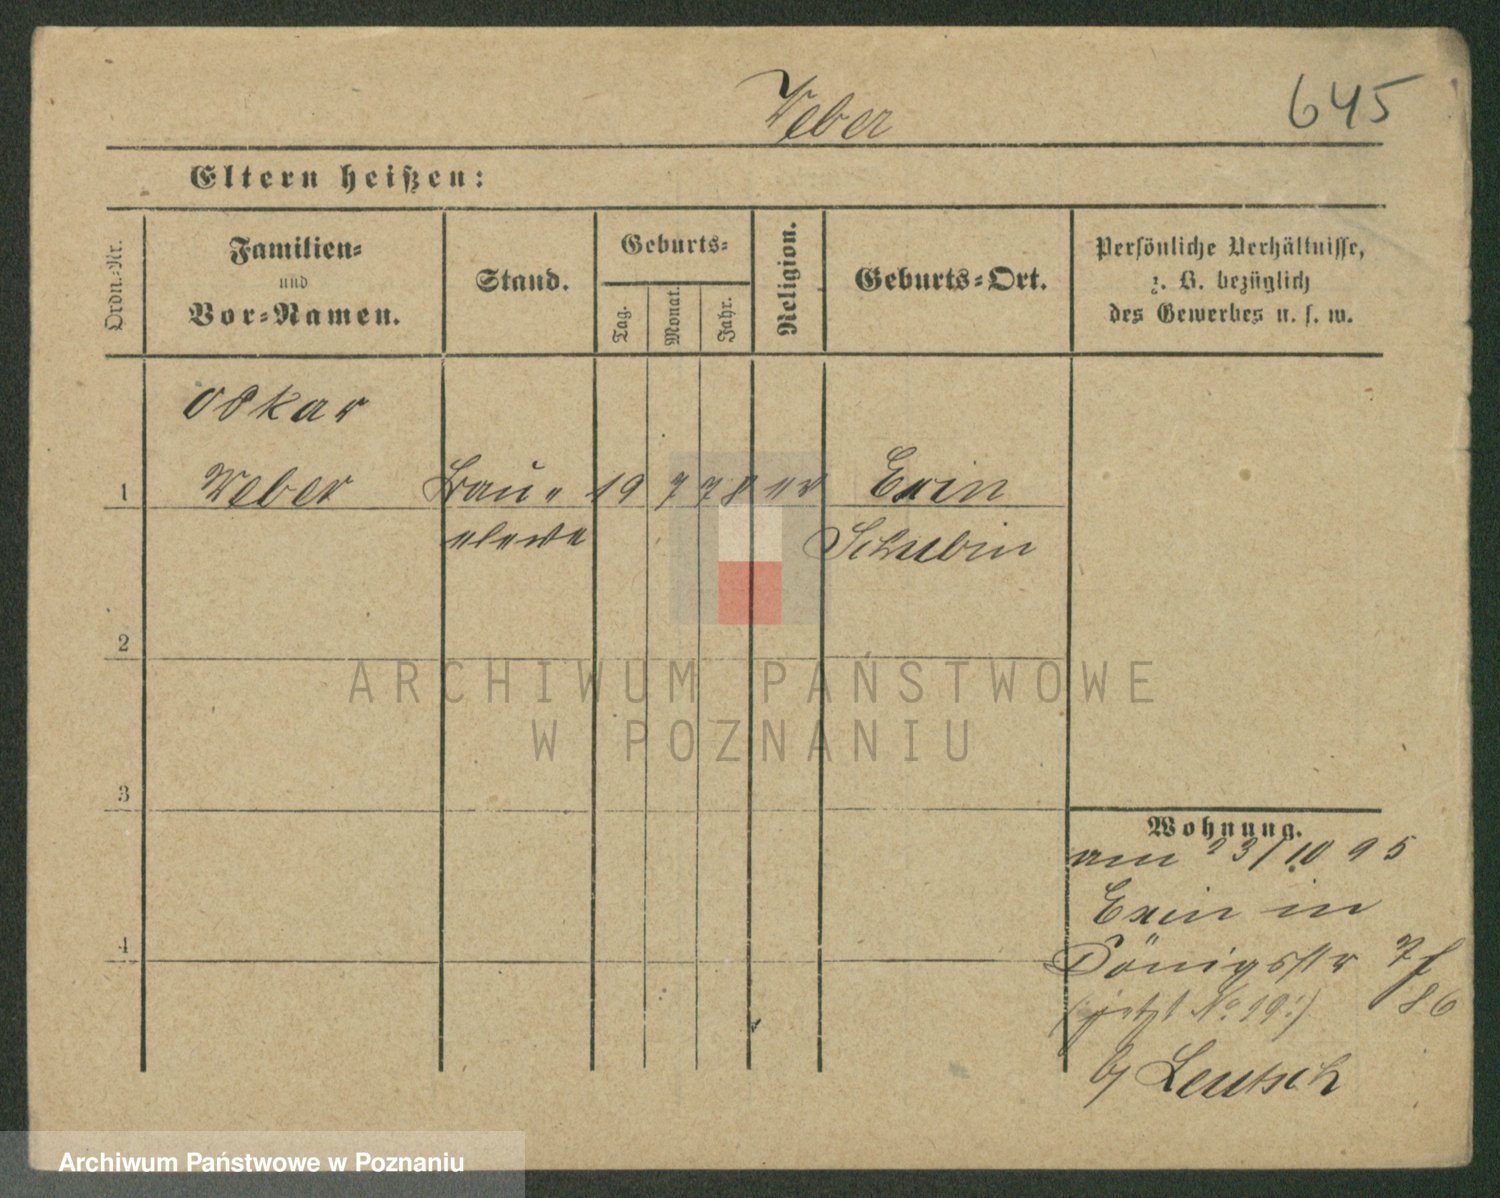 Weber
645
Eltern heißen:
Ordn.-Nr.
Familien-
und
Vor-Namen.
Stand.
Geburts-
Tag.
Monat.
Jahr.
Religion.
Geburts-Ort.
Persönliche Verhältnisse,
z. B. bezüglich
des Gewerbes u. s. w.
Oskar
1 Weber Bau- 19 7 78 ev Exin
eleve Schubin
2
3
4
Wohnung.
am 23/10 95
Exin in
Königsstr 7/
86
(jetzt No 19:)
b/ Leutsch
ARCHIWUM PAŃSTWOWE
W POZNANIU
Archiwum Państwowe w Poznaniu